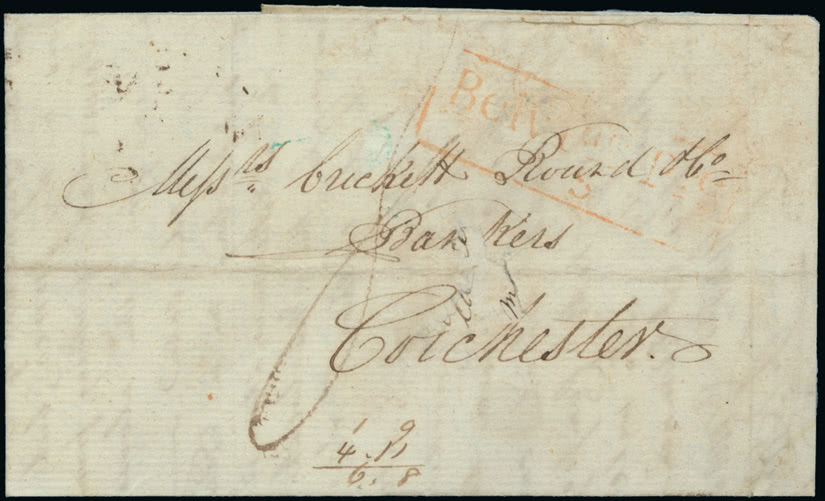 Mess.rs Crickett Round & Co
Bankers
Colchester.
1 9
4 . 11
6 . 8